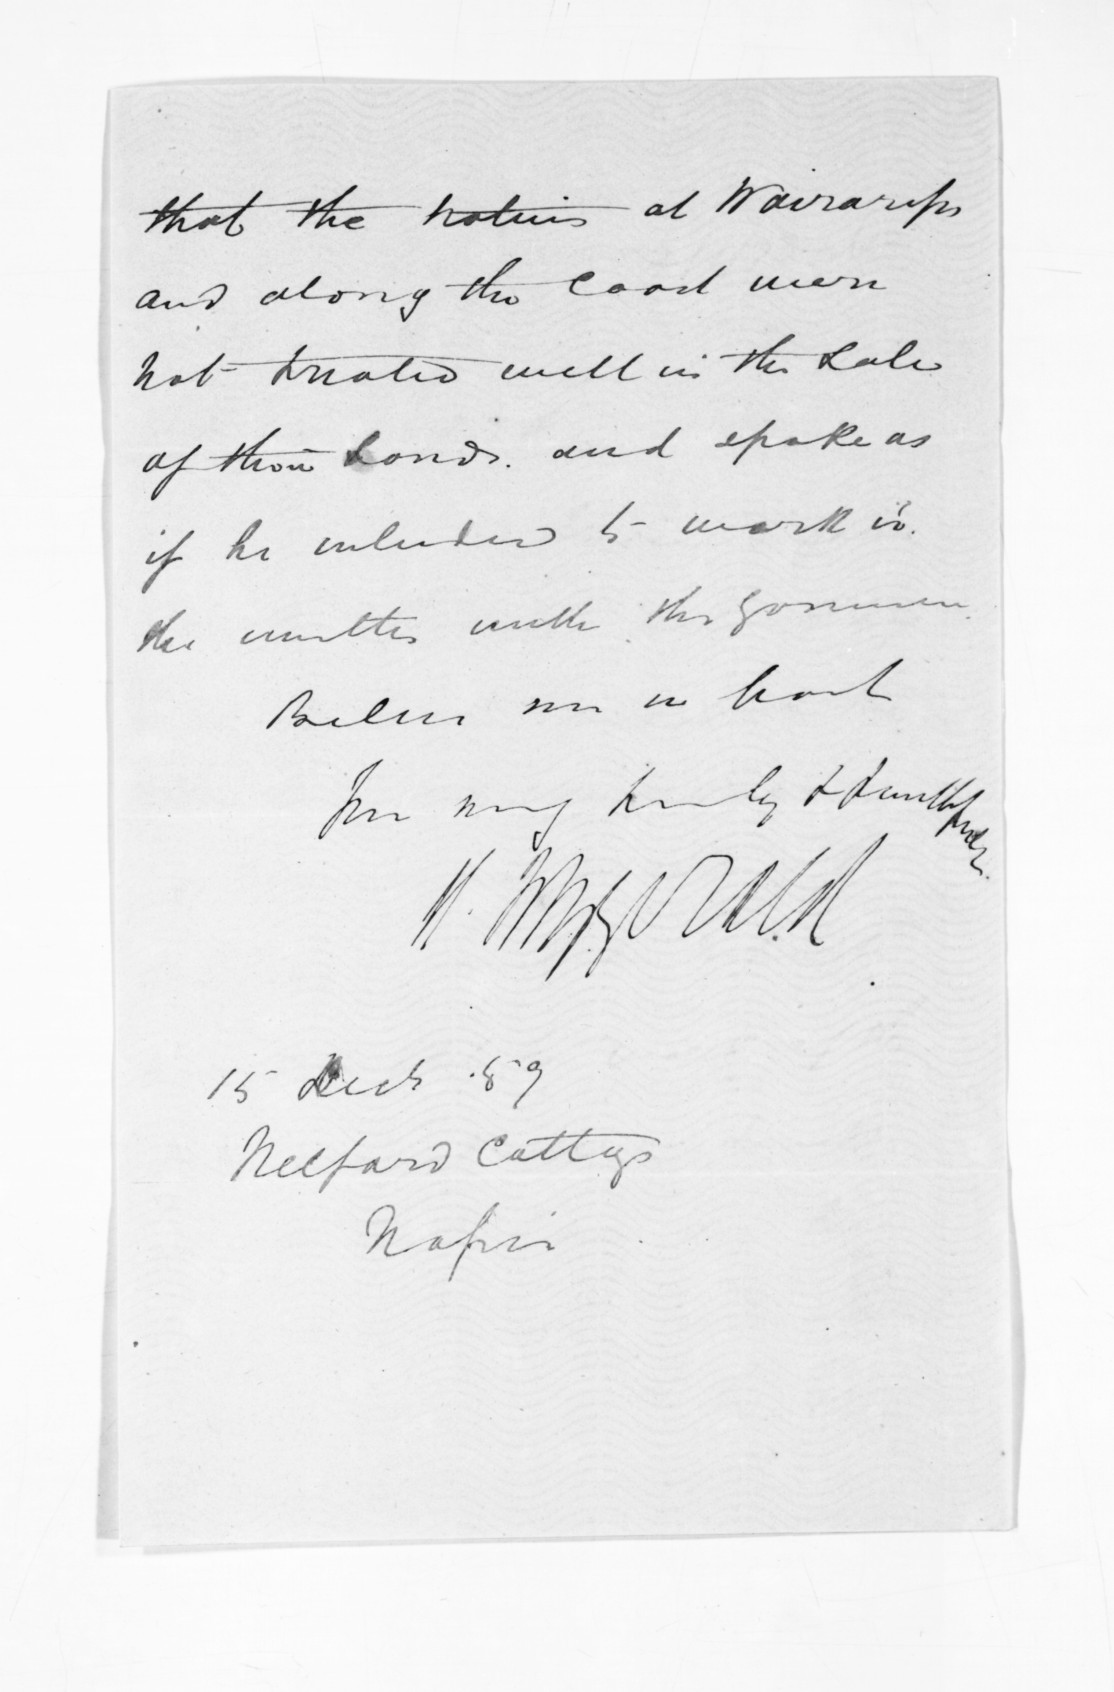 that the natives at Wairarapa
and along the Coast were
not treated well in the Sale
of their Lands. and spoke as
if he intended to work in
the matter with the Governor.
Believe me in haste
Your very truly & faithfully
H. Fitzgerald
15 Decr .59
Cottage
Napier